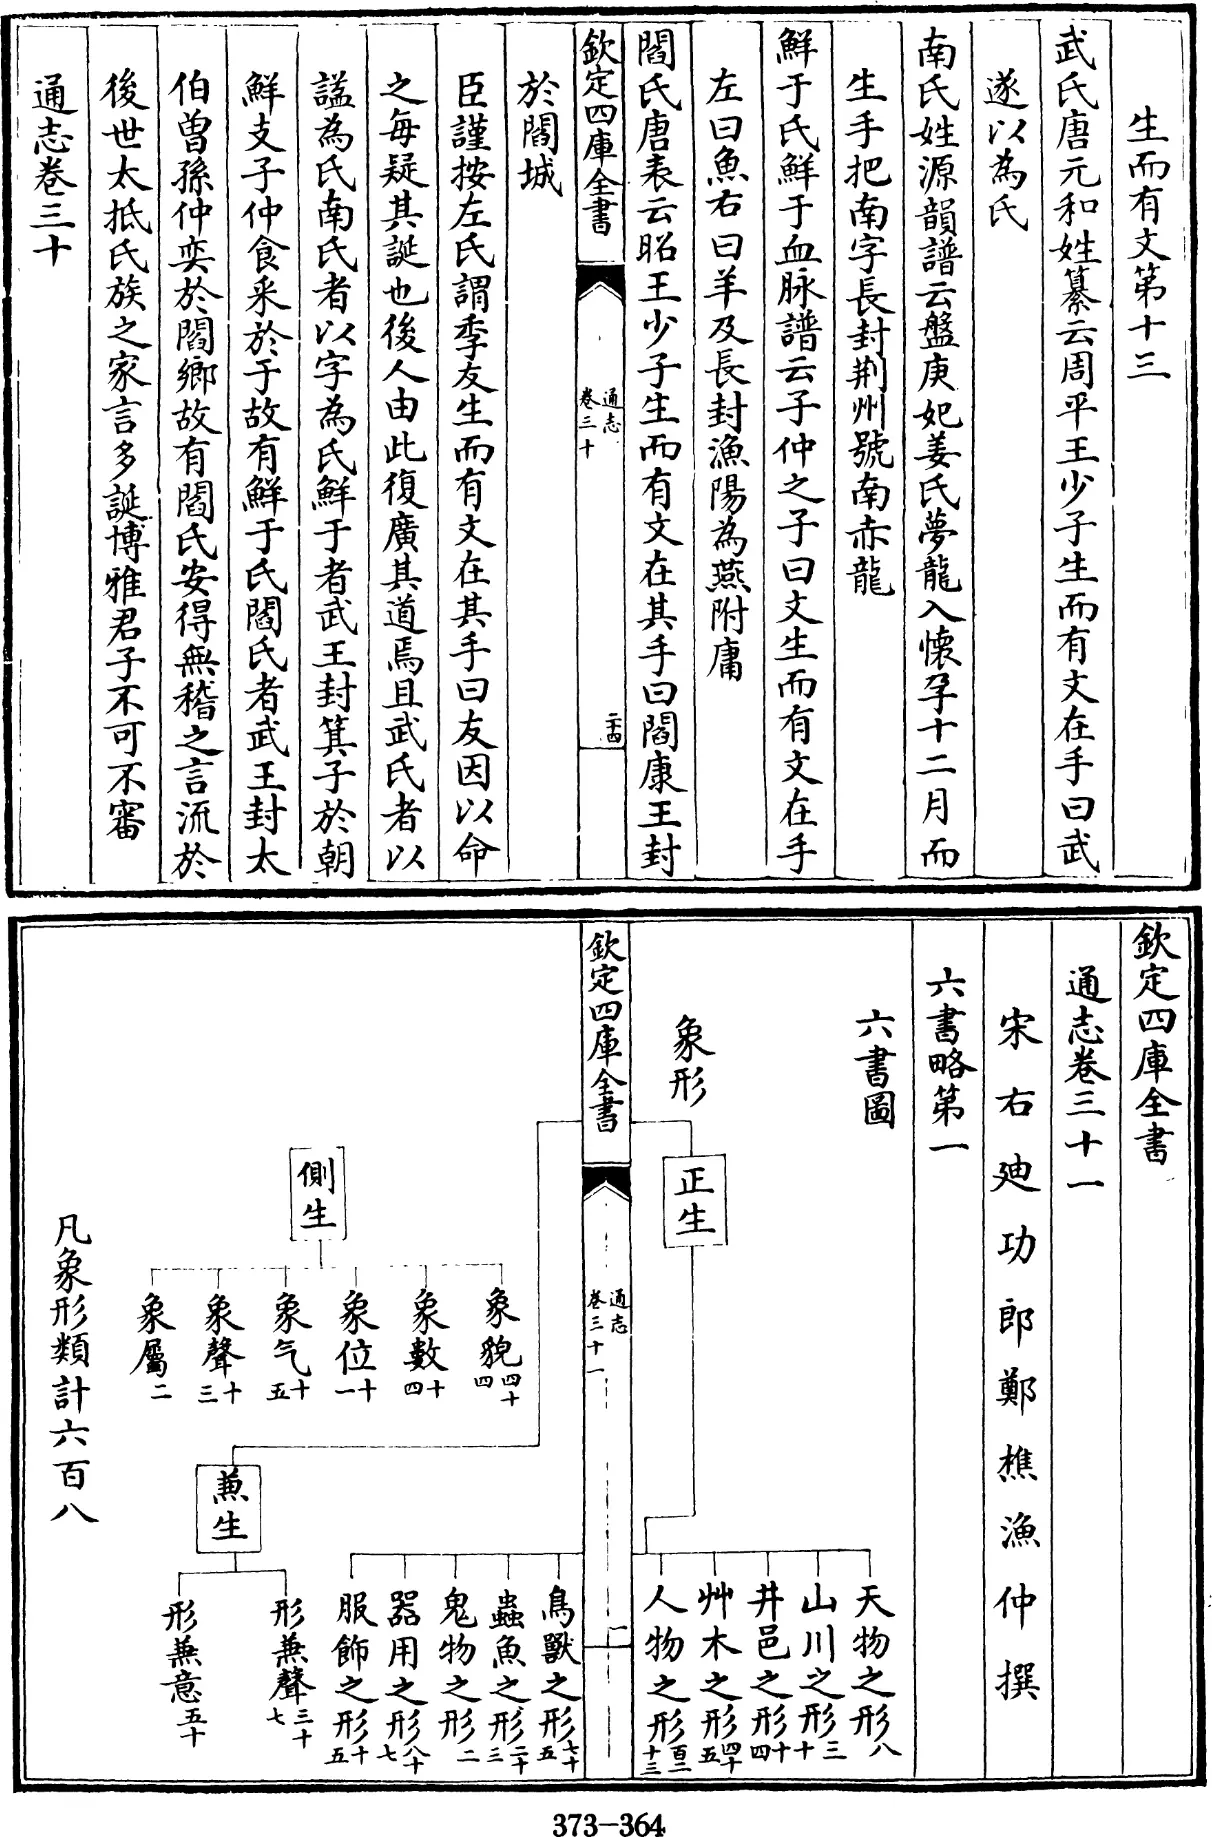 生而有文第十三
武氏唐元和姓纂云周平王少子生而有文在手曰武
遂以為氏
南氏姓源韻譜云盤庚妃姜氏夢龍入懷孕十二月而
生手把南字長封荆州號南赤龍
鮮于氏鮮于血脉譜云子仲之子曰文生而有文在手
左曰魚右曰羊及長封漁陽為燕附庸
閻氏唐表云昭王少子生而有文在其手曰閻康王封
欽定四庫全書
通志
卷三十
二十四
於閻城
臣謹按左氏謂季友生而有文在其手曰友因以命
之每疑其誕也後人由此復廣其道焉且武氏者以
諡為氏南氏者以字為氏鮮于者武王封箕子於朝
鮮支子仲食采於于故有鮮于氏閻氏者武王封太
伯曾孫仲奕於閻鄉故有閻氏安得無稽之言流於
後世太抵氏族之家言多誕博雅君子不可不審
通志卷三十
欽定四庫全書
通志卷三十一
宋右廸功郎鄭樵漁仲撰
六書略第一
六書圖
象形
正生
天物之形八
山川之形三十
井邑之形十四
艸木之形四十五
人物之形百二十三
欽定四庫全書
通志
卷三十一
一
鳥獸之形七十五
蟲魚之形二十三
鬼物之形二
器用之形八十七
服飾之形十五
側生
象貌四十四
象數十四
象位十一
象气十五
象聲十三
象屬二
兼生
形兼聲三十七
形兼意五十
凡象形類計六百八
373-364